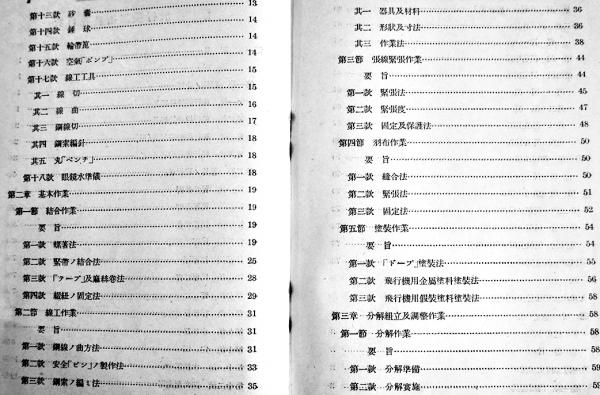 第十三款 砂嚢 13
第十四款 錘球 14
第十五款 輪帶箆 14
第十六款 空氣「ポンプ」 14
第十七款 線工工具 15
其一 線切 15
其二 線曲 16
其三 鋼線切 17
其四 鋼索編針 18
其五 丸「ペンチ」 18
第十八款 眼鏡水準儀 18
第二章 基本作業 19
第一節 結合作業 19
要旨 19
第一款 螺著法 19
第二款 緊帶ノ結合法 25
第三款 「テープ」及麻絲卷法 28
第四款 ノ固定法 29
第二節 線工作業 31
要旨 31
第一款 鋼線ノ曲方法 31
第二款 安全「ピン」ノ製作法 33
第三款 鋼索ノ編ミ法 35
其一 器具及材料 36
其二 形狀及寸法 36
其三 作業法 38
第三節 張線緊張作業 44
要旨 44
第一款 緊張法 45
第二款 緊張度 47
第三款 固定及保護法 48
第四節 羽布作業 50
要旨 50
第一款 縫合法 50
第二款 緊張法 51
第三款 固定法 52
第五節 塗裝作業 54
要旨 54
第一款 「ドープ」塗裝法 55
第二款 飛行機用金屬塗料塗裝法 56
第三款 飛行機用假裝塗料塗裝法 58
第三章 分解組立及調整作業 58
第一節 分解作業 58
要旨 58
第一款 分解準備 59
第二款 分解實施 59